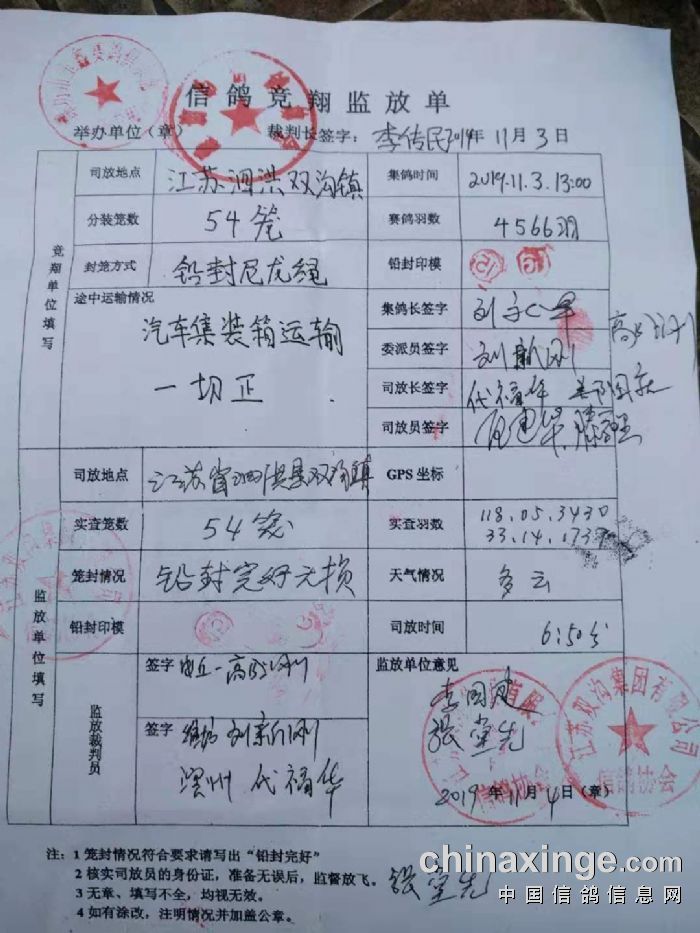 信鸽竞翔监放单
举办单位（章） 裁判长签字：李传民 2019年11月3日
竞翔单位填写
司放地点 江苏泗洪双沟镇 集鸽时间 2019.11.3.13:00
分装笼数 54笼 赛鸽羽数 4566羽
封笼方式 铅封尼龙绳 铅封印模
途中运输情况 集鸽长签字
汽车集装箱运输 委派员签字 刘新刚
一切正 司放长签字 代福华
司放员签字
监放单位填写
司放地点 江苏省泗洪县双沟镇 GPS坐标
实查笼数 54笼 实查羽数 118.05.3430
33.14.1737
笼封情况 铅封完好无损 天气情况 多云
铅封印模 司放时间 6:50分
监放裁判员
签字 监放单位意见
签字 潍坊 刘新刚 李国建
代福华 张堂先
2019年11月4日（章）
江苏双沟集团有限公司
信鸽协会
注：1 笼封情况符合要求请写出“铅封完好”
2 核实司放员的身份证，准备无误后，监督放飞。 张堂先
3 无章、填写不全，均视无效。
4 如有涂改，注明情况并加盖公章。
chinaxinge.com
中国信鸽信息网